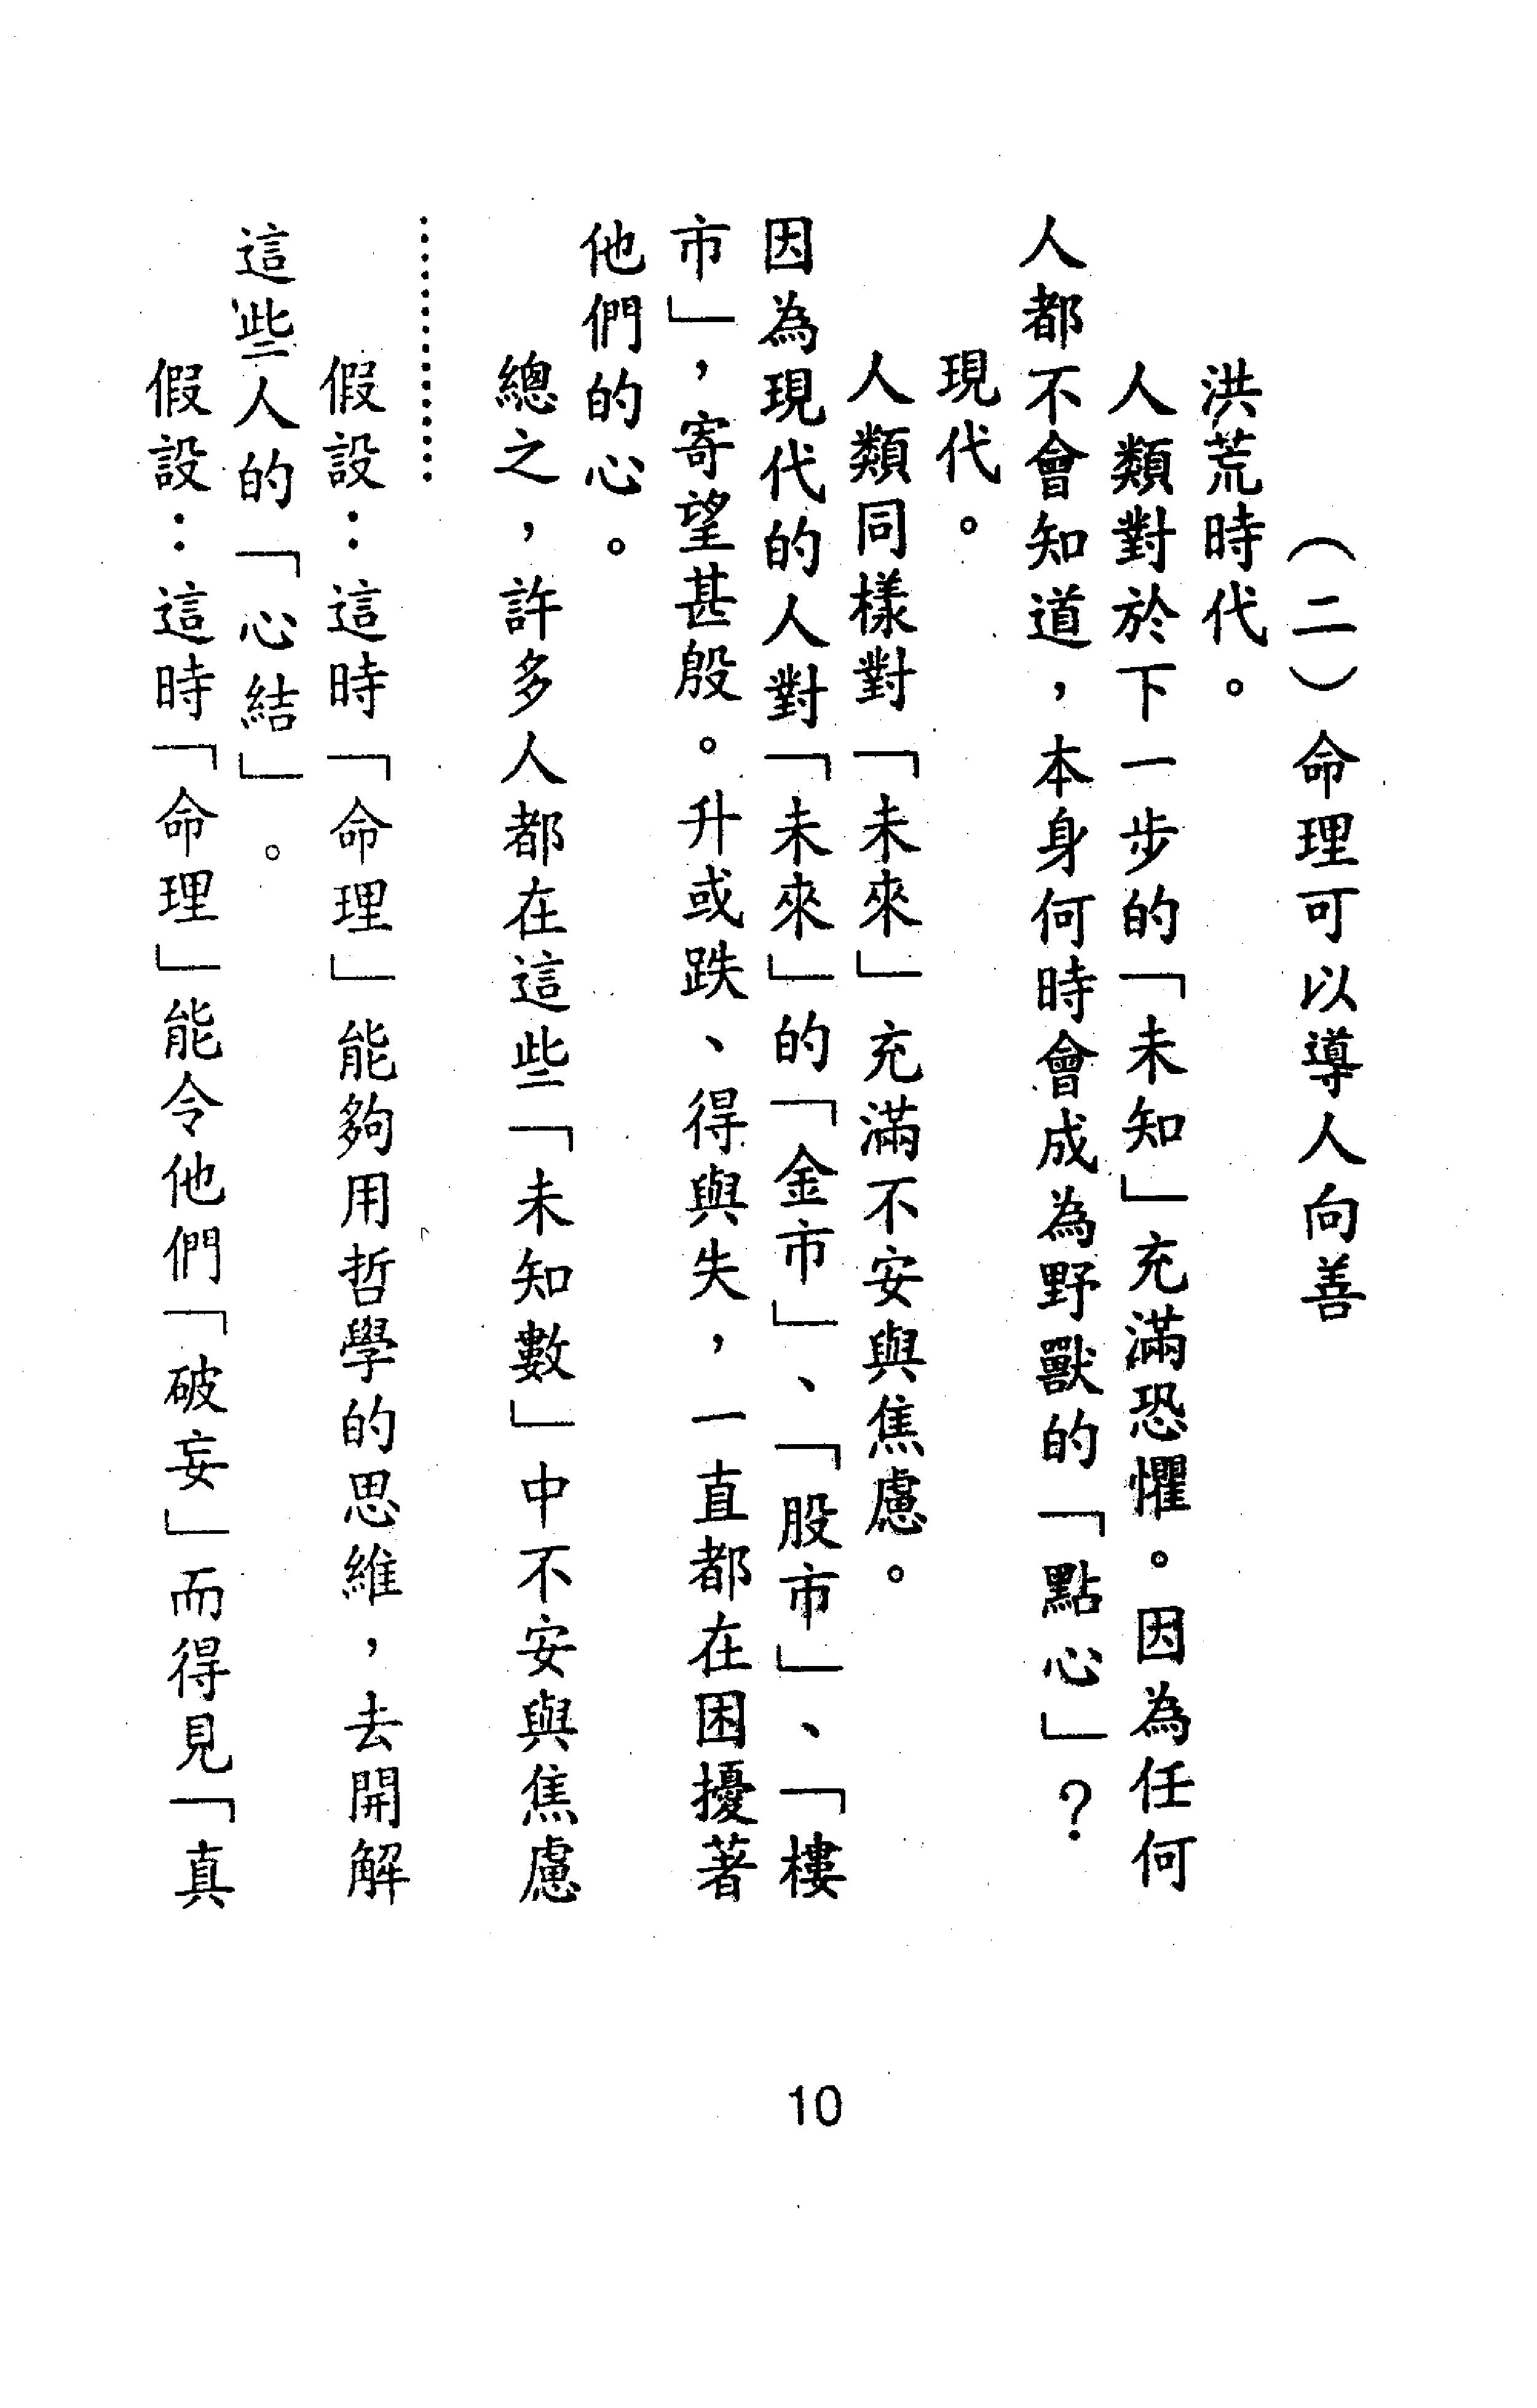 （二）命理可以導人向善
洪荒時代。
人類對於下一步的「未知」充滿恐懼。因為任何
人都不會知道，本身何時會成為野獸的「點心」？
現代。
人類同樣對「未來」充滿不安與焦慮。
因為現代的人對「未來」的「金市」、「股市」、「樓
市」，寄望甚殷。升或跌、得與失，一直都在困擾著
他們的心。
總之，許多人都在這些「未知數」中不安與焦慮
………………
假設：這時「命理」能夠用哲學的思維，去開解
這些人的「心結」。
假設：這時「命理」能令他們「破妄」而得見「真
10